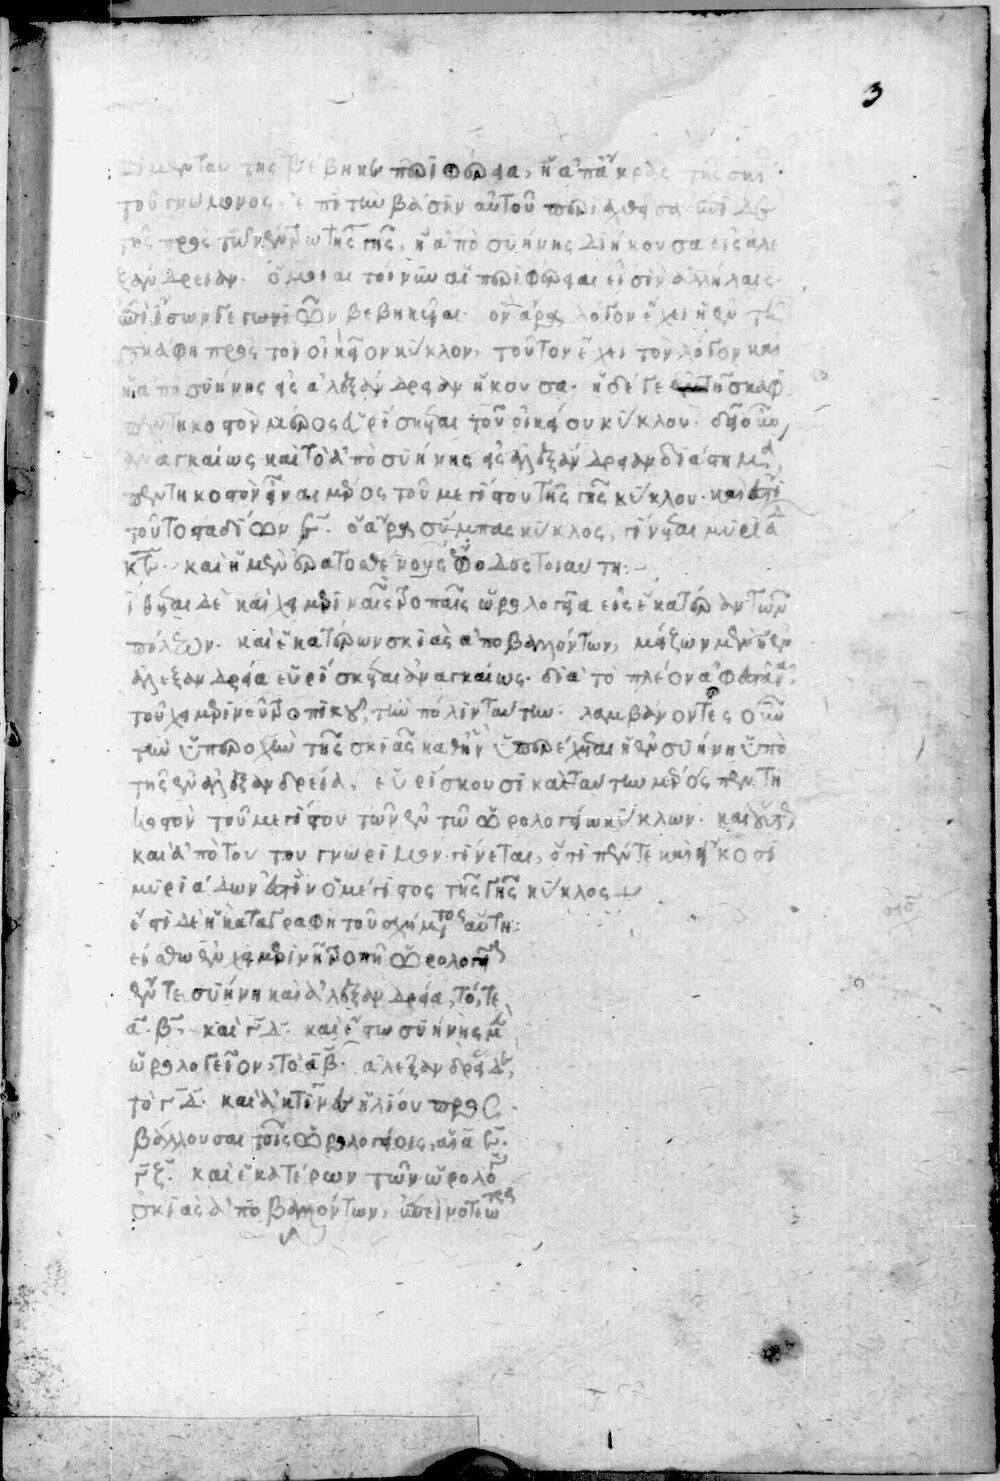 3
ταύτης βέβηκε περιφέρεια, ἡ ἀπ' ἄκρας τῆς σκιᾶς
τοῦ γνώμονος, ἐπὶ τὴν βάσιν αὐτοῦ περιαχθεῖσα· ἐπὶ δὲ
τῆς πρὸς τῷ κέντρῳ τῆς γῆς, ἡ ἀπὸ συήνης διήκουσα εἰς ἀλε
ξάνδρειαν. ὅμοιαι τοίνυν αἱ περιφέρειαι εἰσὶν ἀλλήλαις·
ἐπὶ ἴσων γε γωνιῶν βεβηκυῖαι. ὃν ἄρα λόγον ἔχει ἡ ἐν τῇ
σκάφῃ πρὸς τὸν οἰκεῖον κύκλον, τοῦτον ἔχει τὸν λόγον καὶ
ἡ ἀπὸ συήνης εἰς ἀλεξάνδρειαν ἥκουσα. ἡ δέ γε ἐν τῇ σκάφῃ
πεντηκοστὸν μέρος εὑρίσκεται τοῦ οἰκείου κύκλου. δεῖ οὖν
ἀναγκαίως καὶ τὸ ἀπὸ συήνης εἰς ἀλεξάνδρειαν διάστημα,
πεντηκοστὸν εἶναι μέρος τοῦ μεγίστου τῆς γῆς κύκλου. καὶ ἔστι
τοῦτο σταδίων ͵ε. ὁ ἄρα σύμπας κύκλος, γίνεται μυριάδων
κε. καὶ ἡ μὲν ἐρατοσθένους ἔφοδος τοιαύτη:
τίθεται δὲ καὶ χειμεριναῖς τροπαῖς ὡρολογεῖα εἰς ἑκατέραν τῶν
πόλεων. καὶ ἑκατέρων σκιὰς ἀποβαλλόντων, μείζων μὲν ἡ ἐν
ἀλεξανδρείᾳ εὑρίσκεται ἀναγκαίως. διὰ τὸ πλέον ἀφεστάναι
τοῦ χειμερινοῦ τροπικοῦ, τὴν πόλιν ταύτην. λαμβάνοντες οὖν
τὴν ὑπεροχὴν τῆς σκιᾶς καθ' ἣν ὑπερέχεται ἡ ἐν συήνῃ ὑπὸ
τῆς ἐν ἀλεξανδρείᾳ, εὑρίσκουσι καὶ ταύτην μέρος πεντη
κοστὸν τοῦ μεγίστου τῶν ἐν τῷ ὡρολογείῳ κύκλων. καὶ οὕτω
καὶ ἀπὸ τούτου γνώριμον γίνεται, ὅτι πέντε καὶ εἴκοσι
μυριάδων ἐστὶν ὁ μέγιστος τῆς γῆς κύκλος
ἔστι δὲ ἡ καταγραφὴ τοῦ σχήματος αὕτη:
ἔσθω ἐν χειμερινῇ τροπῇ ὡρολογεῖα
ἔν τε συήνῃ καὶ ἀλεξανδρείᾳ, τό, τε
α β. καὶ γ δ. καὶ ἔστω συήνης μὲν
ὡρολογεῖον, τὸ α β. ἀλεξανδρείας δὲ,
τὸ γ δ. καὶ ἀκτῖνες ἡλίου προσ
βάλλουσαι τοῖς ὡρολογείοις, αἱ α ε.
γ ζ. καὶ ἑκατέρων τῶν ὡρολογείων
σκιὰς ἀποβαλλόντων,